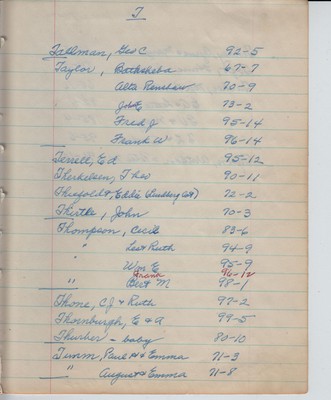 T
Tillman, Geo C 92-5
Taylor, Bathsheba 67-7
Alta Renshaw 70-9
John 73-2
Fred J 95-14
Frank W 96-14
Terrill, Ed 95-12
Therkelsen, Theo 90-11
Eddie 72-2
Thirtle, John 70-3
Thompson, Cecil 83-6
" Les & Ruth 94-9
Wm E 95-9
Frank 96-12
" Bert M 98-1
Thone, C.J & Ruth 97-2
Thornburgh, E & A 99-5
Thurber - baby 80-10
Timm, Paul H & Emma 71-3
" August & Emma 71-8